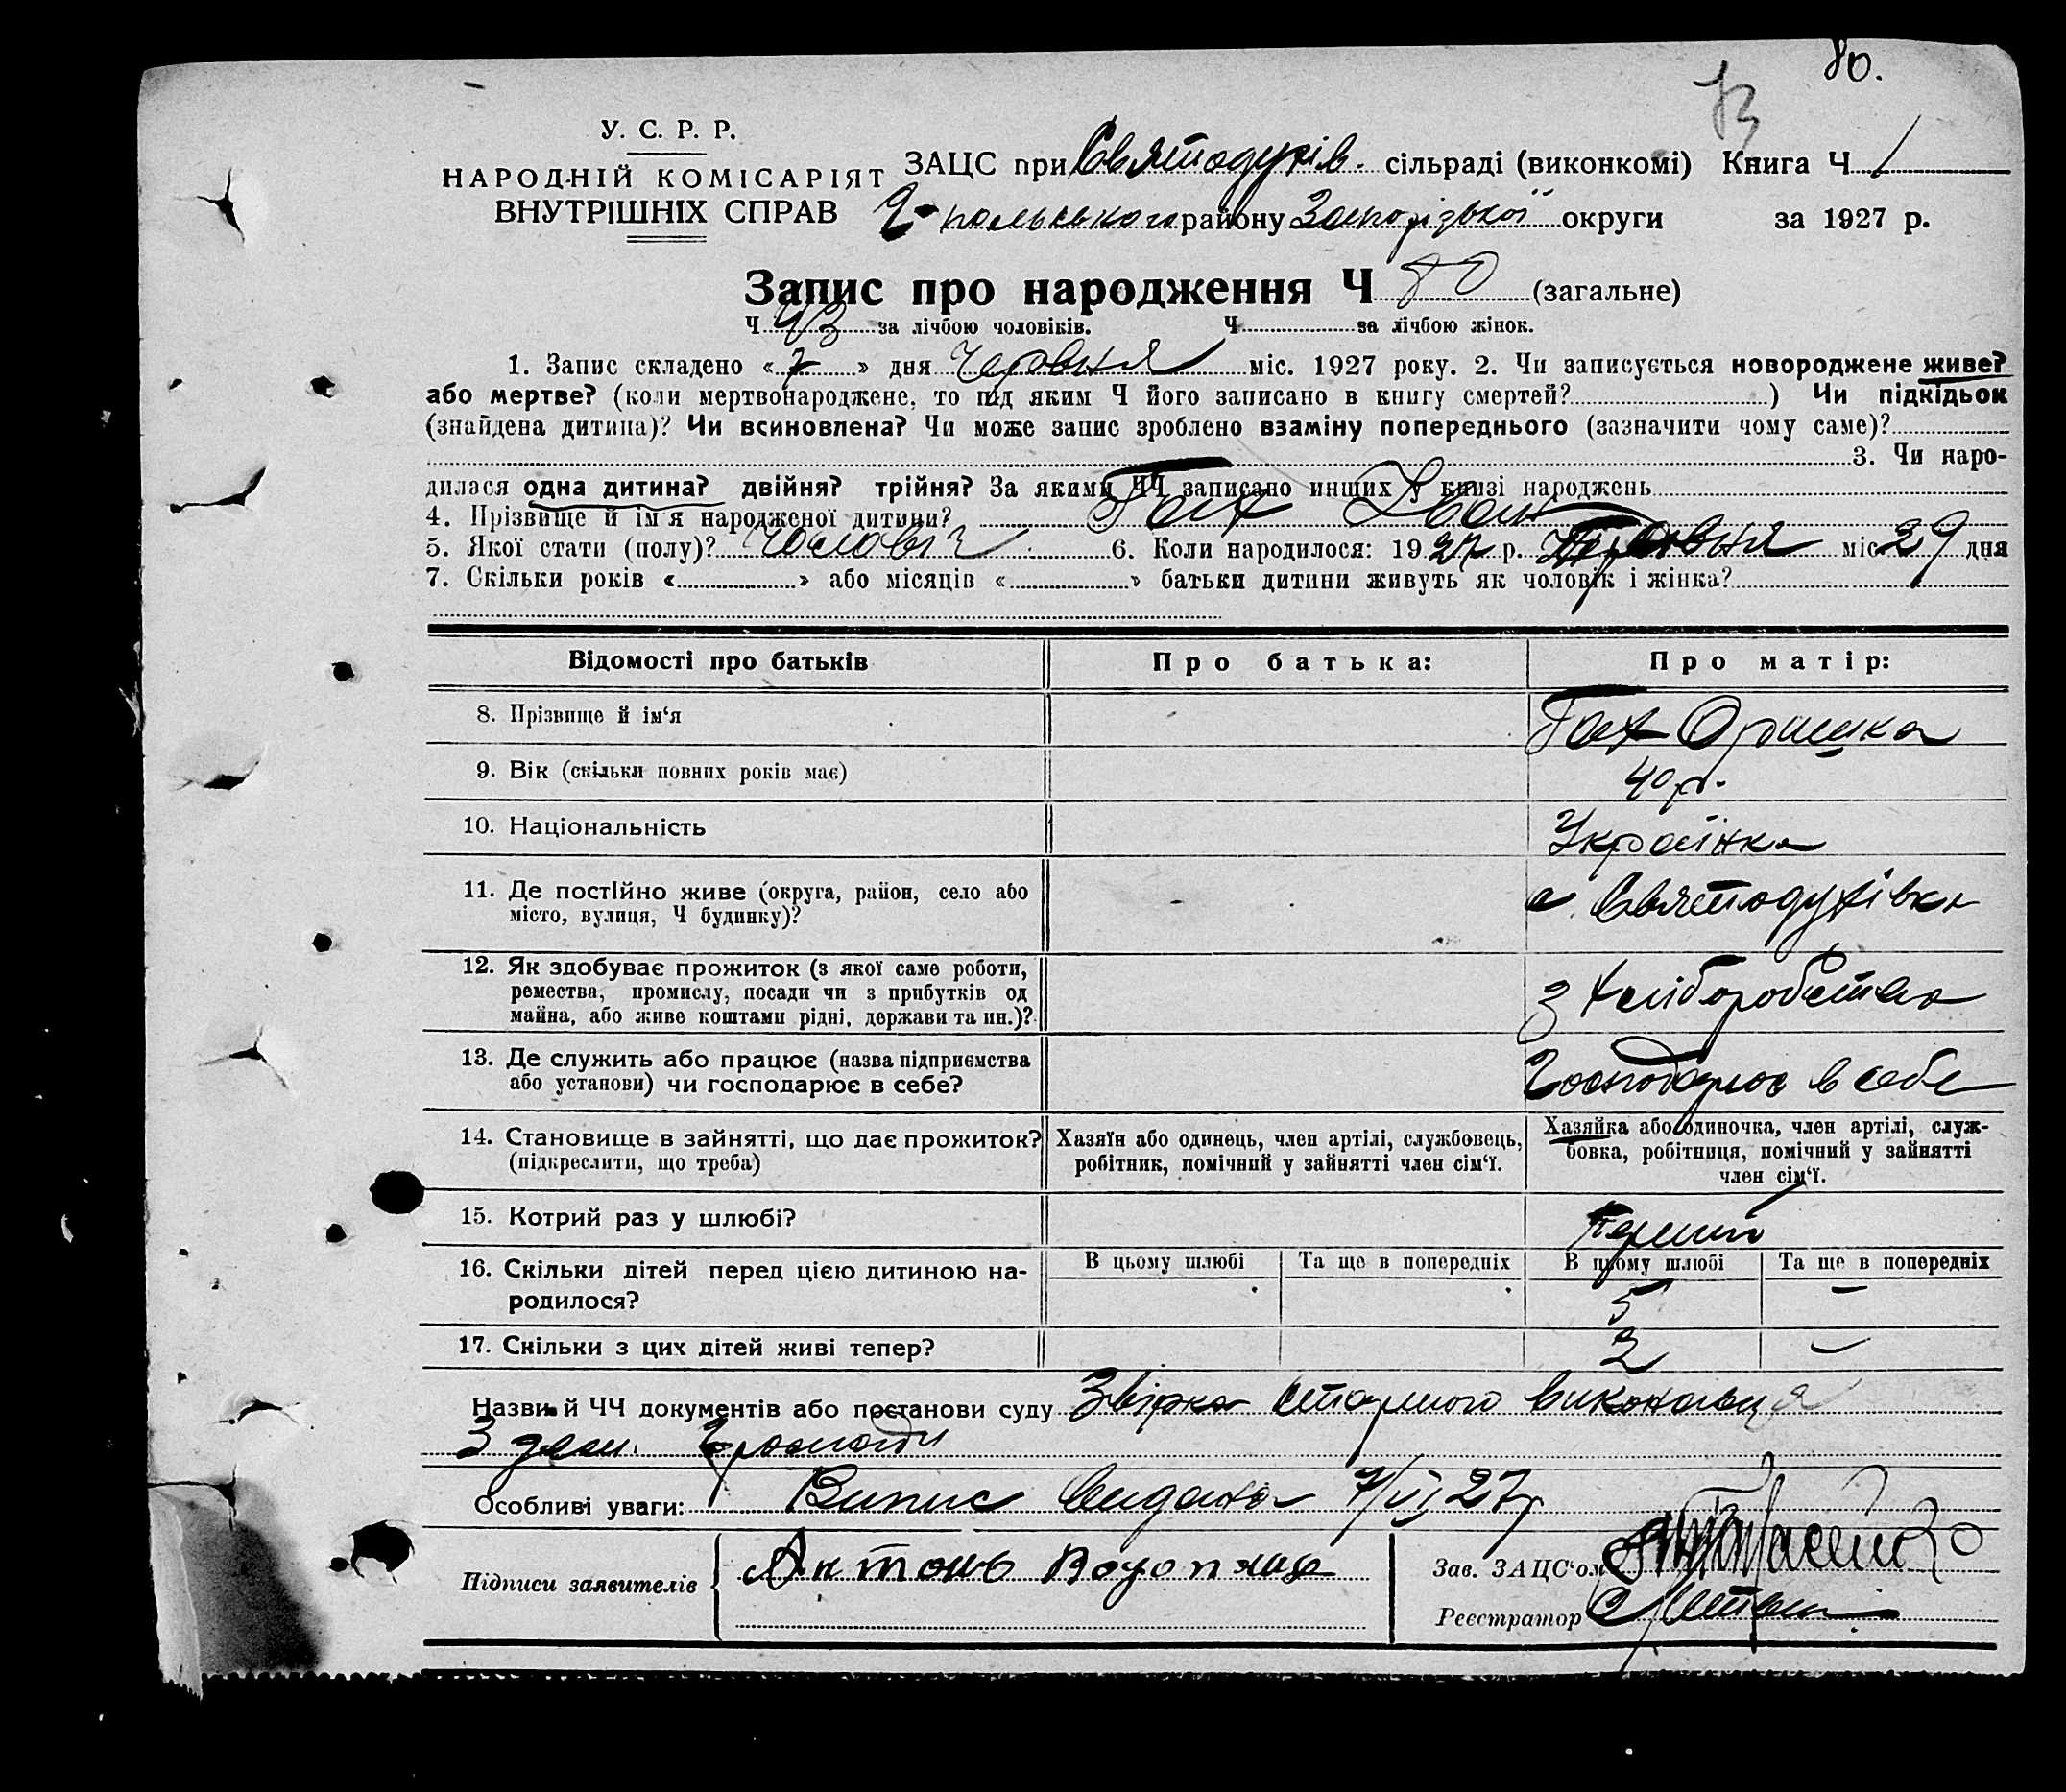 80.
У. С. Р. Р.
НАРОДНІЙ КОМІСАРІЯТ
ВНУТРІШНІХ СПРАВ
ЗАЦС при Святодухів. сільраді (виконкомі) Книга Ч 1
польського району Запорізької округи за 1927 р.
Запис про народження Ч 80 (загальне)
Ч 43 за лічбою чоловіків. Ч за лічбою жінок.
1. Запис складено « 7 » дня Червня міс. 1927 року. 2. Чи записується новороджене живе?
або мертве? (коли мертвонароджене, то під яким Ч його записано в книгу смертей? ) Чи підкідьок
(знайдена дитина)? Чи всиновлена? Чи може запис зроблено взаміну попереднього (зазначити чому саме)?
3. Чи наро-
дилася одна дитина? двійня? трійня? За якими ЧЧ записано инших у книзі народжень
4. Прізвище й ім'я народженої дитини? Гах Іван
5. Якої стати (полу)? Чоловіч 6. Коли народилося: 1927 р. міс 29 дня
7. Скільки років « » або місяців « » батьки дитини живуть як чоловік і жінка?
Відомості про батьків Про батька: Про матір:
8. Прізвище й ім'я Гах Оришка
9. Вік (скільки повних років має) 40 р.
10. Національність Українка
11. Де постійно живе (округа, район, село або
місто, вулиця, Ч будинку)? с. Святодухівка
12. Як здобуває прожиток (з якої саме роботи,
ремества, промислу, посади чи з прибутків од
майна, або живе коштами рідні, держави та ин.)? з хліборобства
13. Де служить або працює (назва підприємства
або установи) чи господарює в себе? Господарює в себе
14. Становище в зайнятті, що дає прожиток?
(підкреслити, що треба)
Хазяїн або одинець, член артілі, службовець,
робітник, помічний у зайнятті член сім'ї.
Хазяйка або одиночка, член артілі, служ-
бовка, робітниця, помічний у зайнятті
член сім'ї.
15. Котрий раз у шлюбі? перший
16. Скільки дітей перед цією дитиною на-
родилося?
В цьому шлюбі Та ще в попередніх В цьому шлюбі Та ще в попередніх
5 –
17. Скільки з цих дітей живі тепер? 2 –
Назви й ЧЧ документів або постанови суду Звірка виконавця
3 Громади
Особливі уваги: Випис видано 7/VI 27р
Підписи заявителів Антонъ Водопяцъ
Зав. ЗАЦС'ом
Реєстратор